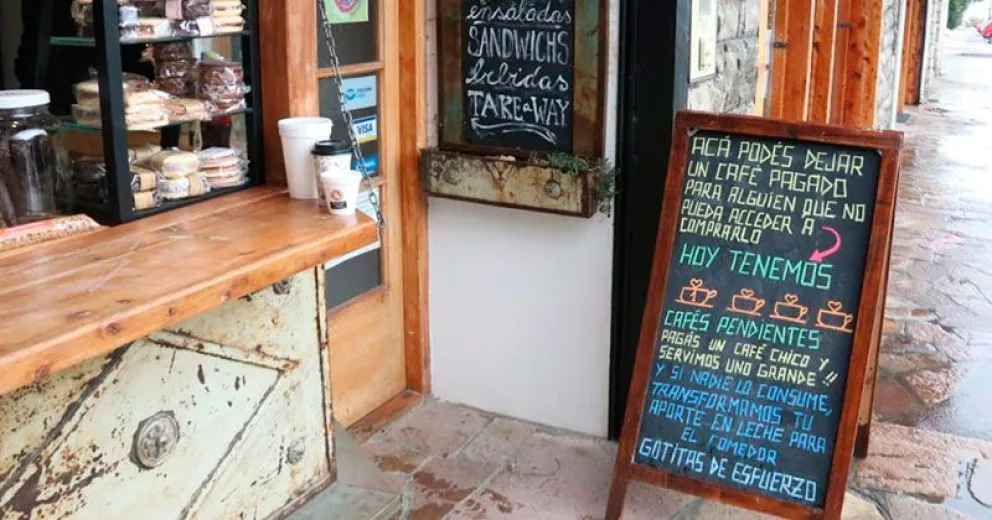 ensaladas
SANDWICHS
bebidas
TAKE a WAY
VISA
ACÁ PODÉS DEJAR
UN CAFÉ PAGADO
PARA ALGUIEN QUE NO
PUEDA ACCEDER A
COMPRARLO
HOY TENEMOS
1
CAFÉS PENDIENTES
PAGÁS UN CAFÉ CHICO Y
SERVIMOS UNO GRANDE !!
Y SI NADIE LO CONSUME,
TRANSFORMAMOS TU
APORTE EN LECHE PARA
EL COMEDOR
GOTITAS DE ESFUERZO